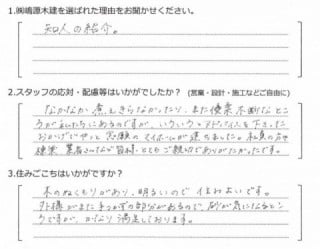 1.㈱嶋源木建を選ばれた理由をお聞かせください。
知人の紹介。
2.スタッフの応対・配慮等はいかがでしたか？ (営業・設計・施工などご自由に)
なかなか煮えきらなかったり、また優柔不断なとこ
ろが私たちにあるのですが、いろいろとアドバイスを下さった
おかげでやっと念願のマイホームが建ちました。社員の方や
業者さんなど皆様、とてもご親切でありがたかったです。
3.住みごこちはいかがですか？
木のぬくもりがあり、明るいので住みよいです。
外構がまだ手つかずの部分があるので、砂が気になるとこ
ろですが、かなり満足しております。